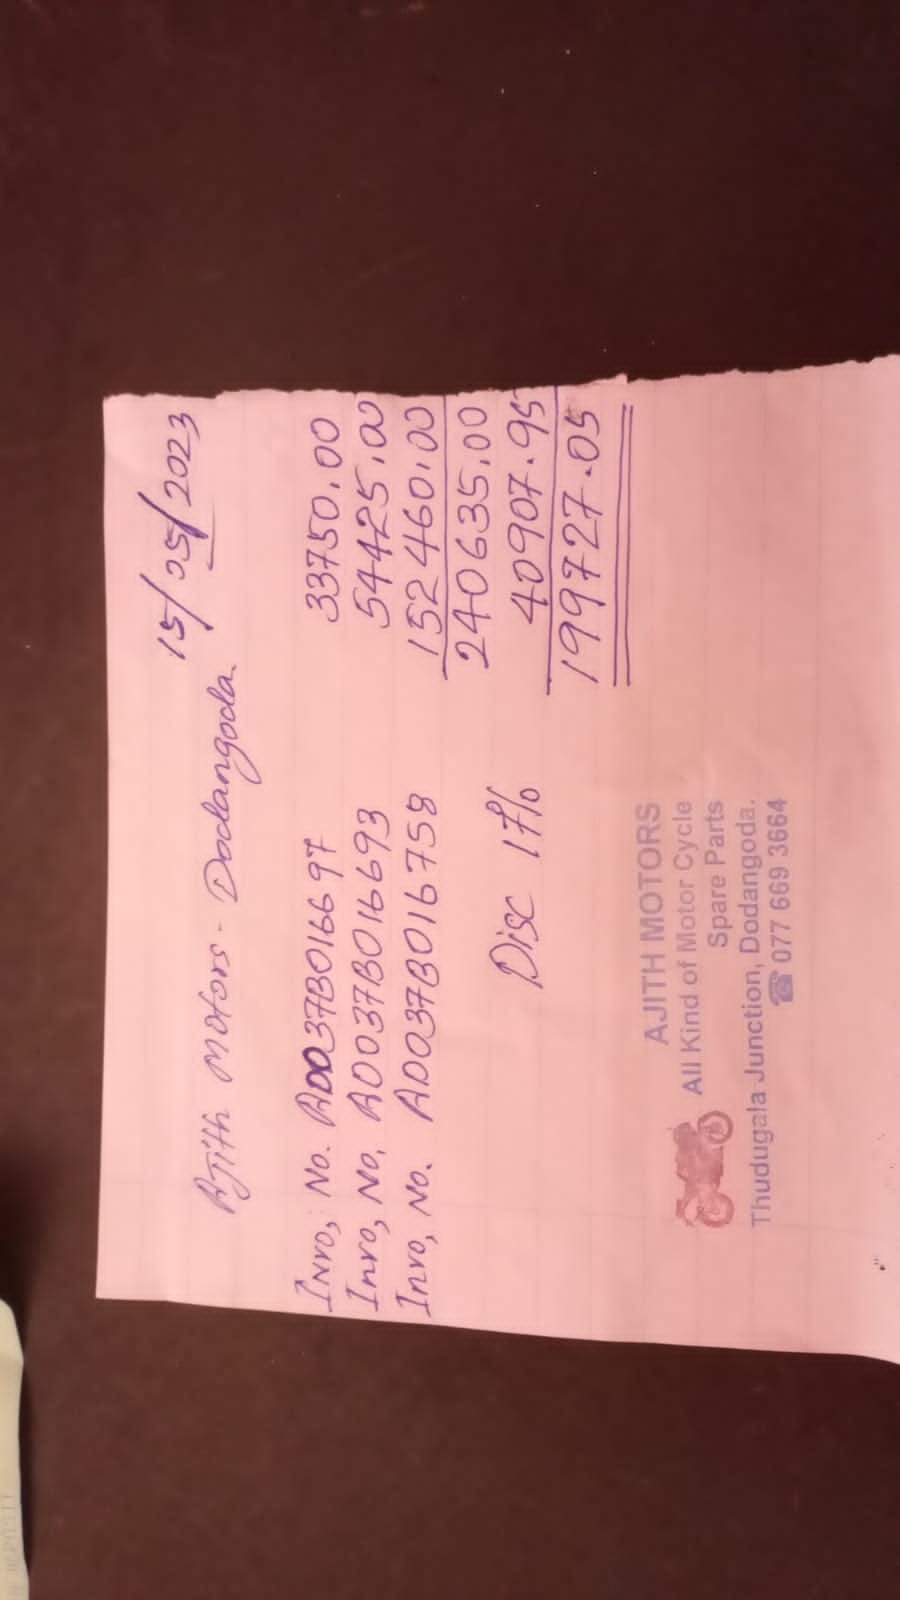 15/05/2023
Ajith Motors - Dodangoda.
Invo, No. AD037B016697 33750.00
Invo, No. AD037B016693 54425.00
Invo, No. AD037B016758 152460.00
240635.00
Disc 17% 40907.95
199727.05
AJITH MOTORS
All Kind of Motor Cycle
Spare Parts
Thudugala Junction, Dodangoda.
☎ 077 669 3664